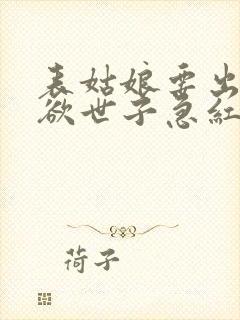 表姑娘要出
欲世子急红
荷子